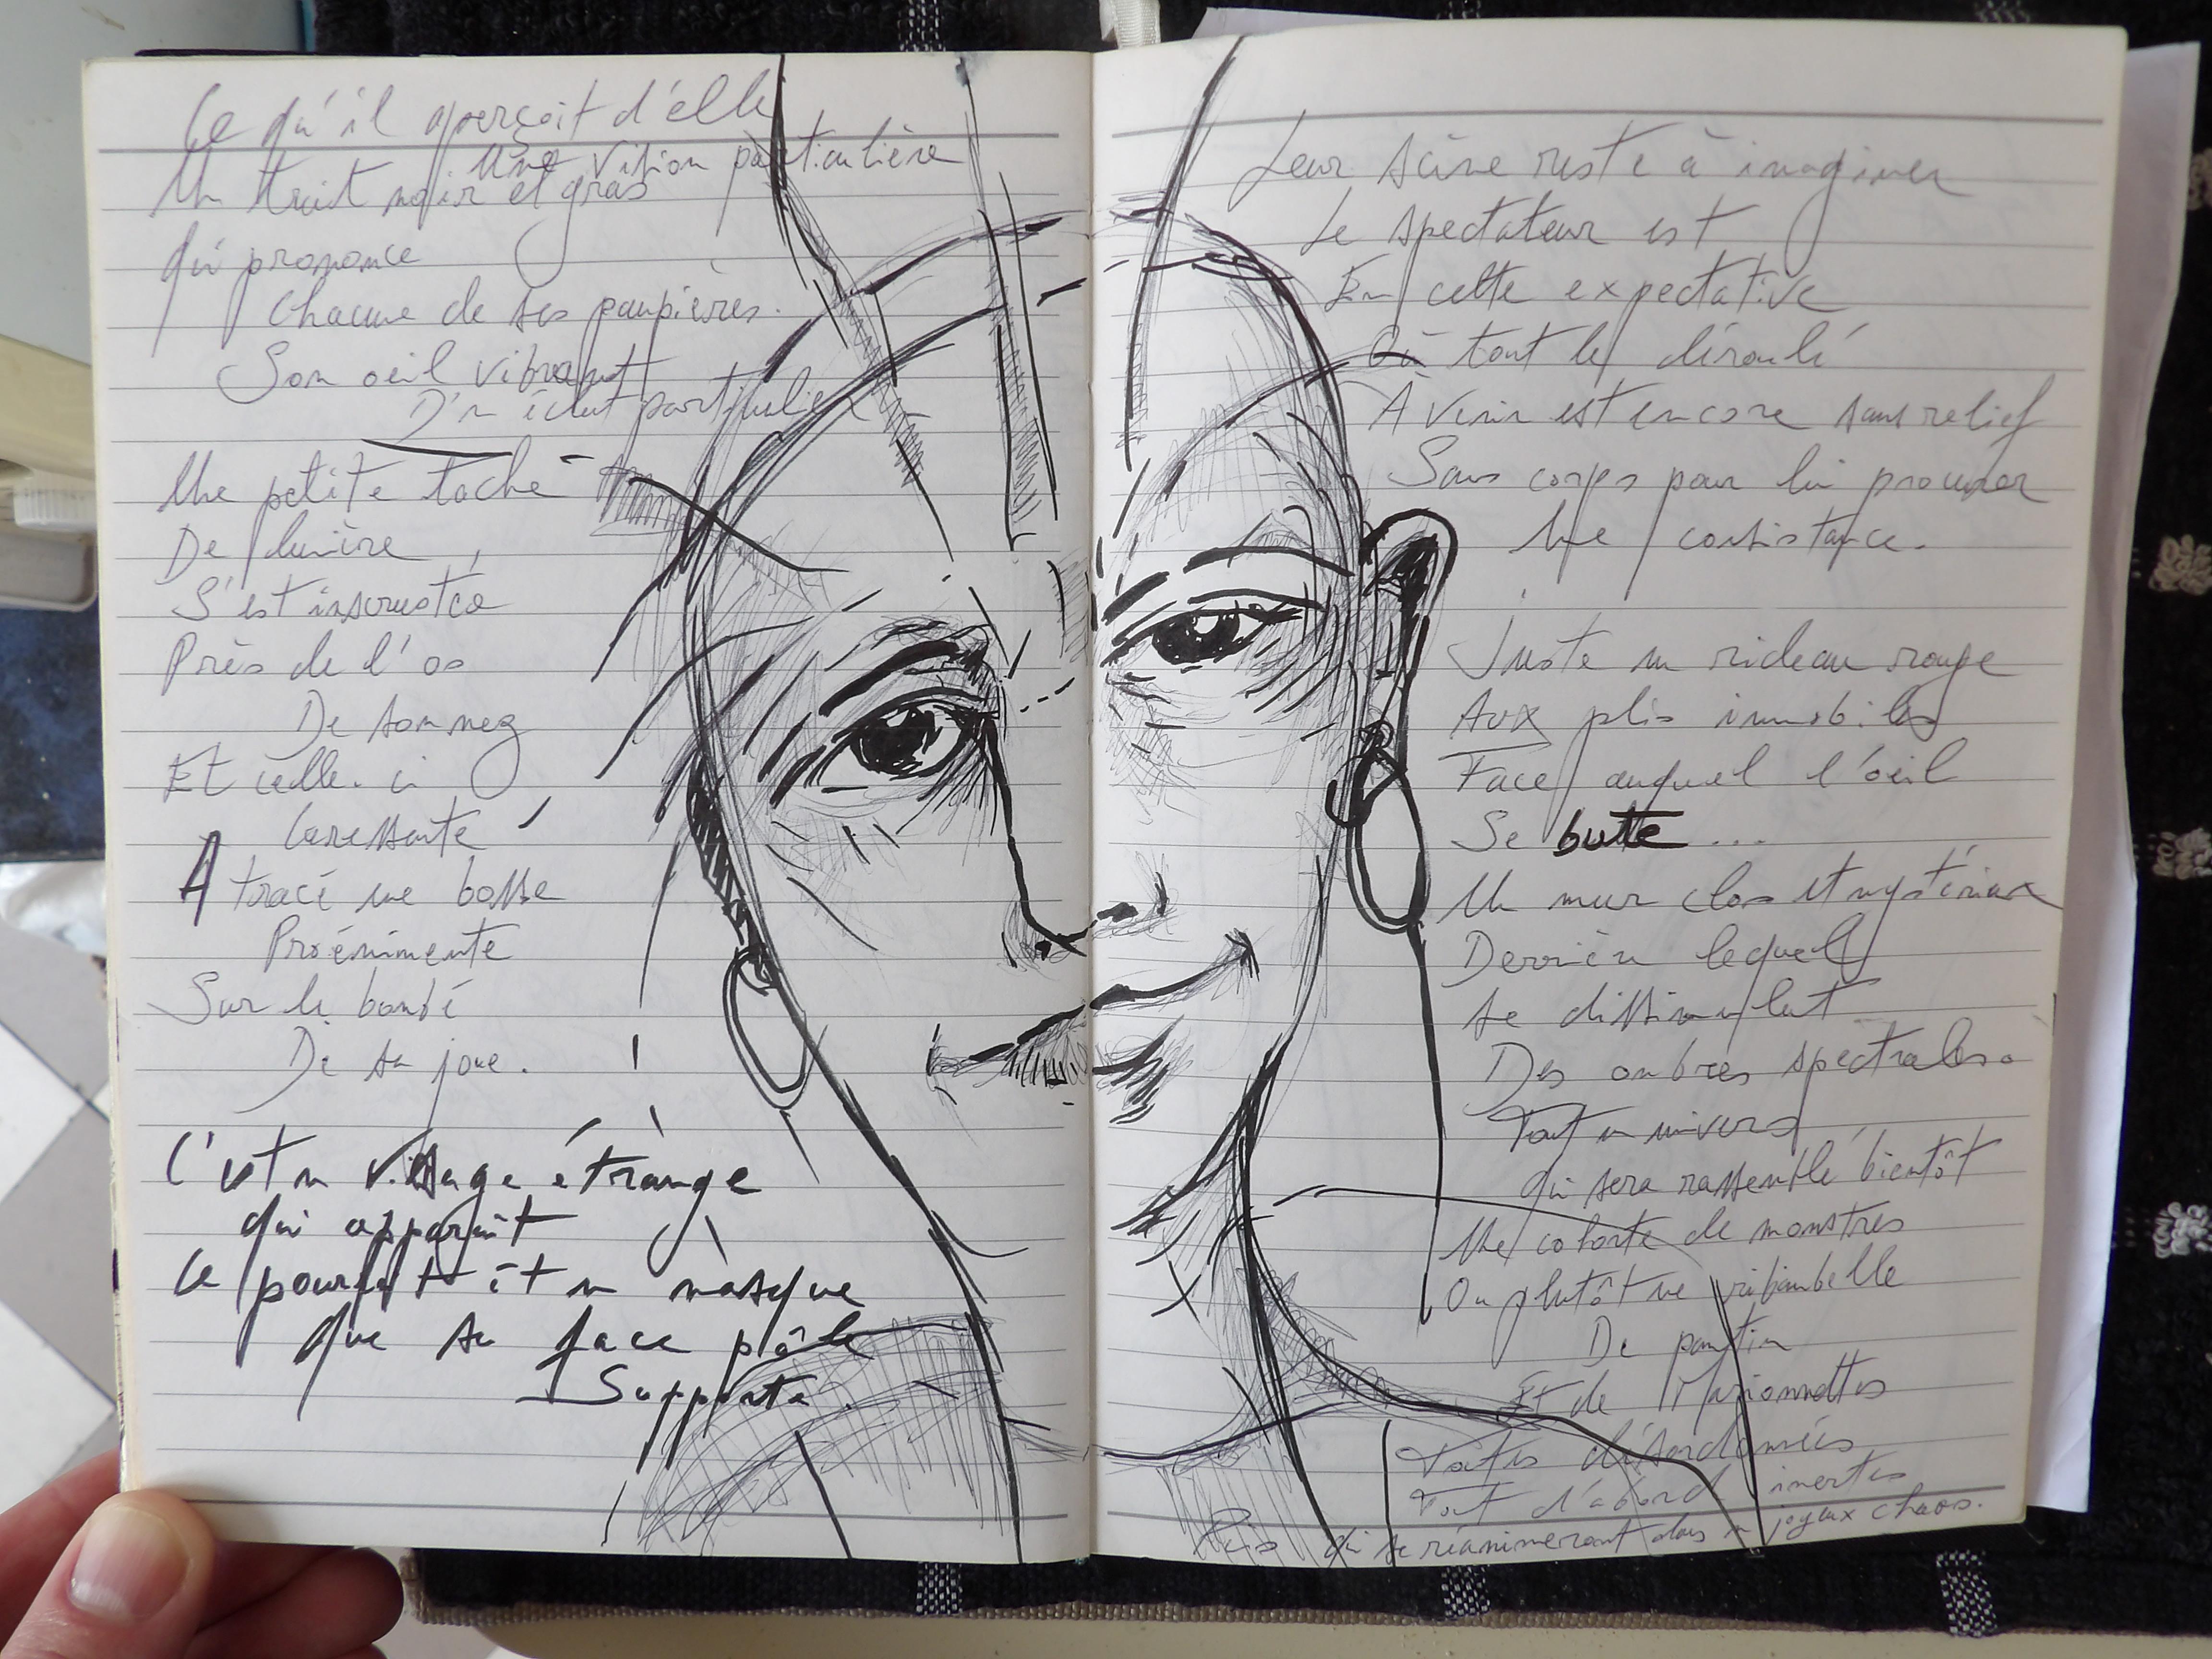 Ce qu'il aperçoit d'elle
Une vision particulière
Un trait noir et gras
qui prononce
Chacune de ses paupières.
Son oeil vibrant
D'n éclat particulier
Une petite tache
De lumière
S'est incrustée
Près de l'os
De son nez
Et celle-ci
Caressante
A tracé une bosse
Proéminente
Sur le bombé
De sa joue.
C'est un visage étrange
qui apparaît
Ce pourrait êt un masque
que sa face pâle
Supporte.
Leur scène reste à imaginer
Le spectateur est
En cette expectative
Où tout le déroulé
À venir est encore sans relief
Sans corps pour lui procurer
Une consistance.
Juste un rideau rouge
Aux plis immobiles
Face auquel l'oeil
Se bute...
Un mur clos et mystérieux
Derrière lequel
se dissimulent
Des ombres spectrales.
Tout un univers
qui sera rassemblé bientôt
Une cohorte de monstres
Ou plutôt une ribambelle
De pantin
Et de Marionnettes
Toutes désordonnées
Tout d'abord inertes
Puis qui se réanimeront dans un joyeux chaos.